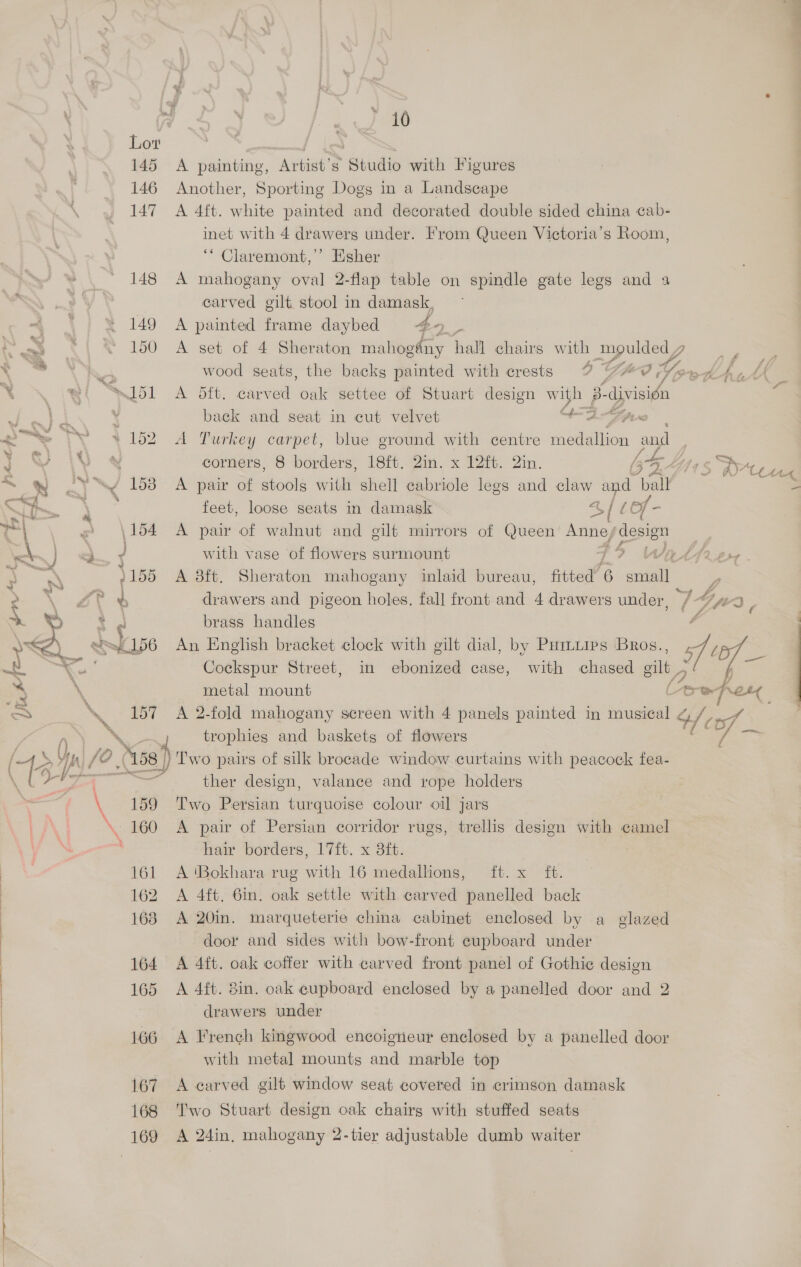 10
Lot
145 A painting, Artist's Studio with Figures
146 Another, Sporting Dogs in a Landscape
147 A 4ft. white painted and decorated double sided china cab-
inet with 4 drawers under. From Queen Victoria's Room,
“ Claremont,” Esher
148 A mahogany oval 2-flap table on spindle gate legs and a
carved gilt stool in damask,
149 A painted frame daybed
150 A set of 4 Sheraton mahogany hall chairs with moulded
wood seats, the backs painted with crests
151 A 5ft. carved oak settee of Stuart design with 3-division
back and seat in cut velvet
152 A Turkey carpet, blue ground with centre medallion and
corners, 8 borders, 18ft. 2in. x 12ft. 2in.
153 A pair of stools with shell cabriole legs and claw and ball
feet, loose seats in damask
154 A pair of walnut and gilt mirrors of Queen Anne design
with vase of flowers surmount
155 A 3ft. Sheraton mahogany inlaid bureau, fitted 6 small
drawers and pigeon holes, fall front and 4 drawers under,
brass handles
156 An English bracket clock with gilt dial, by Phillips Bros.,
Cockspur Street, in ebonized case, with chased gilt
metal mount
157 A 2-fold mahogany screen with 4 panels painted in musical
trophies and baskets of flowers
158 Two pairs of silk brocade window curtains with peacock fea-
ther design, valance and rope holders
159 Two Persian turquoise colour oil jars
160 A pair of Persian corridor rugs, trellis design with camel
hair borders, 17ft. x 3ft.
161 A Bokhara rug with 16 medallions, ft. x ft.
162 A 4ft. 6in. oak settle with carved panelled back
163 A 20in. marqueterie china cabinet enclosed by a glazed
door and sides with bow-front cupboard under
164 A 4ft. oak coffer with carved front panel of Gothic design
165 A 4ft. 3in. oak cupboard enclosed by a panelled door and 2
drawers under
166 A French kingwood encoigneur enclosed by a panelled door
with metal mounts and marble top
167 A carved gilt window seat covered in crimson damask
168 Two Stuart design oak chairs with stuffed seats
169 A 24in. mahogany 2-tier adjustable dumb waiter